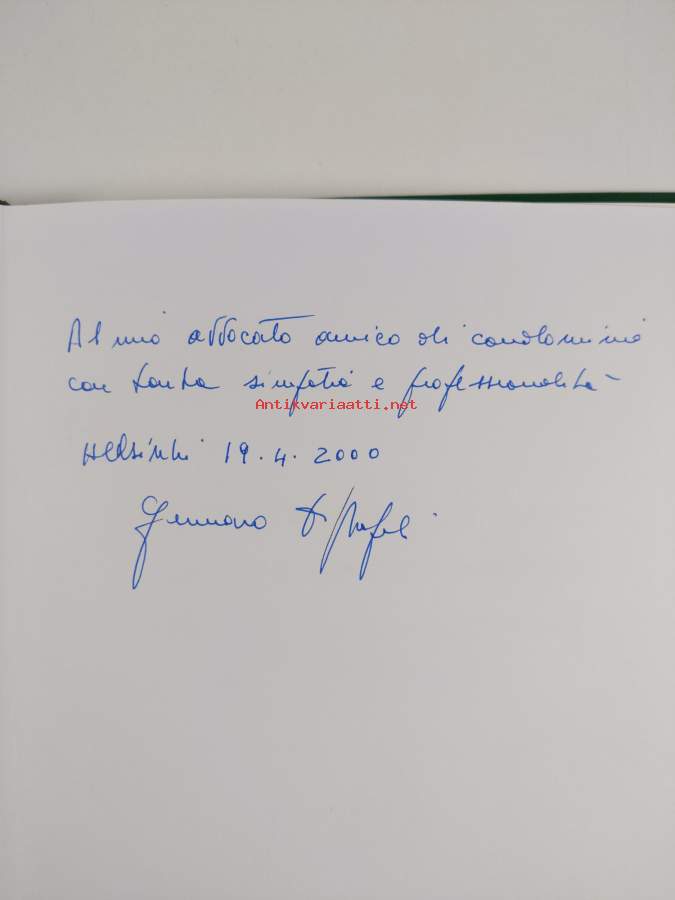 Al mio avvocato amico di condominio
con tanta simpatia e professionalità
Antikvariaatti.net
Helsinki 19.4.2000
Gennaro